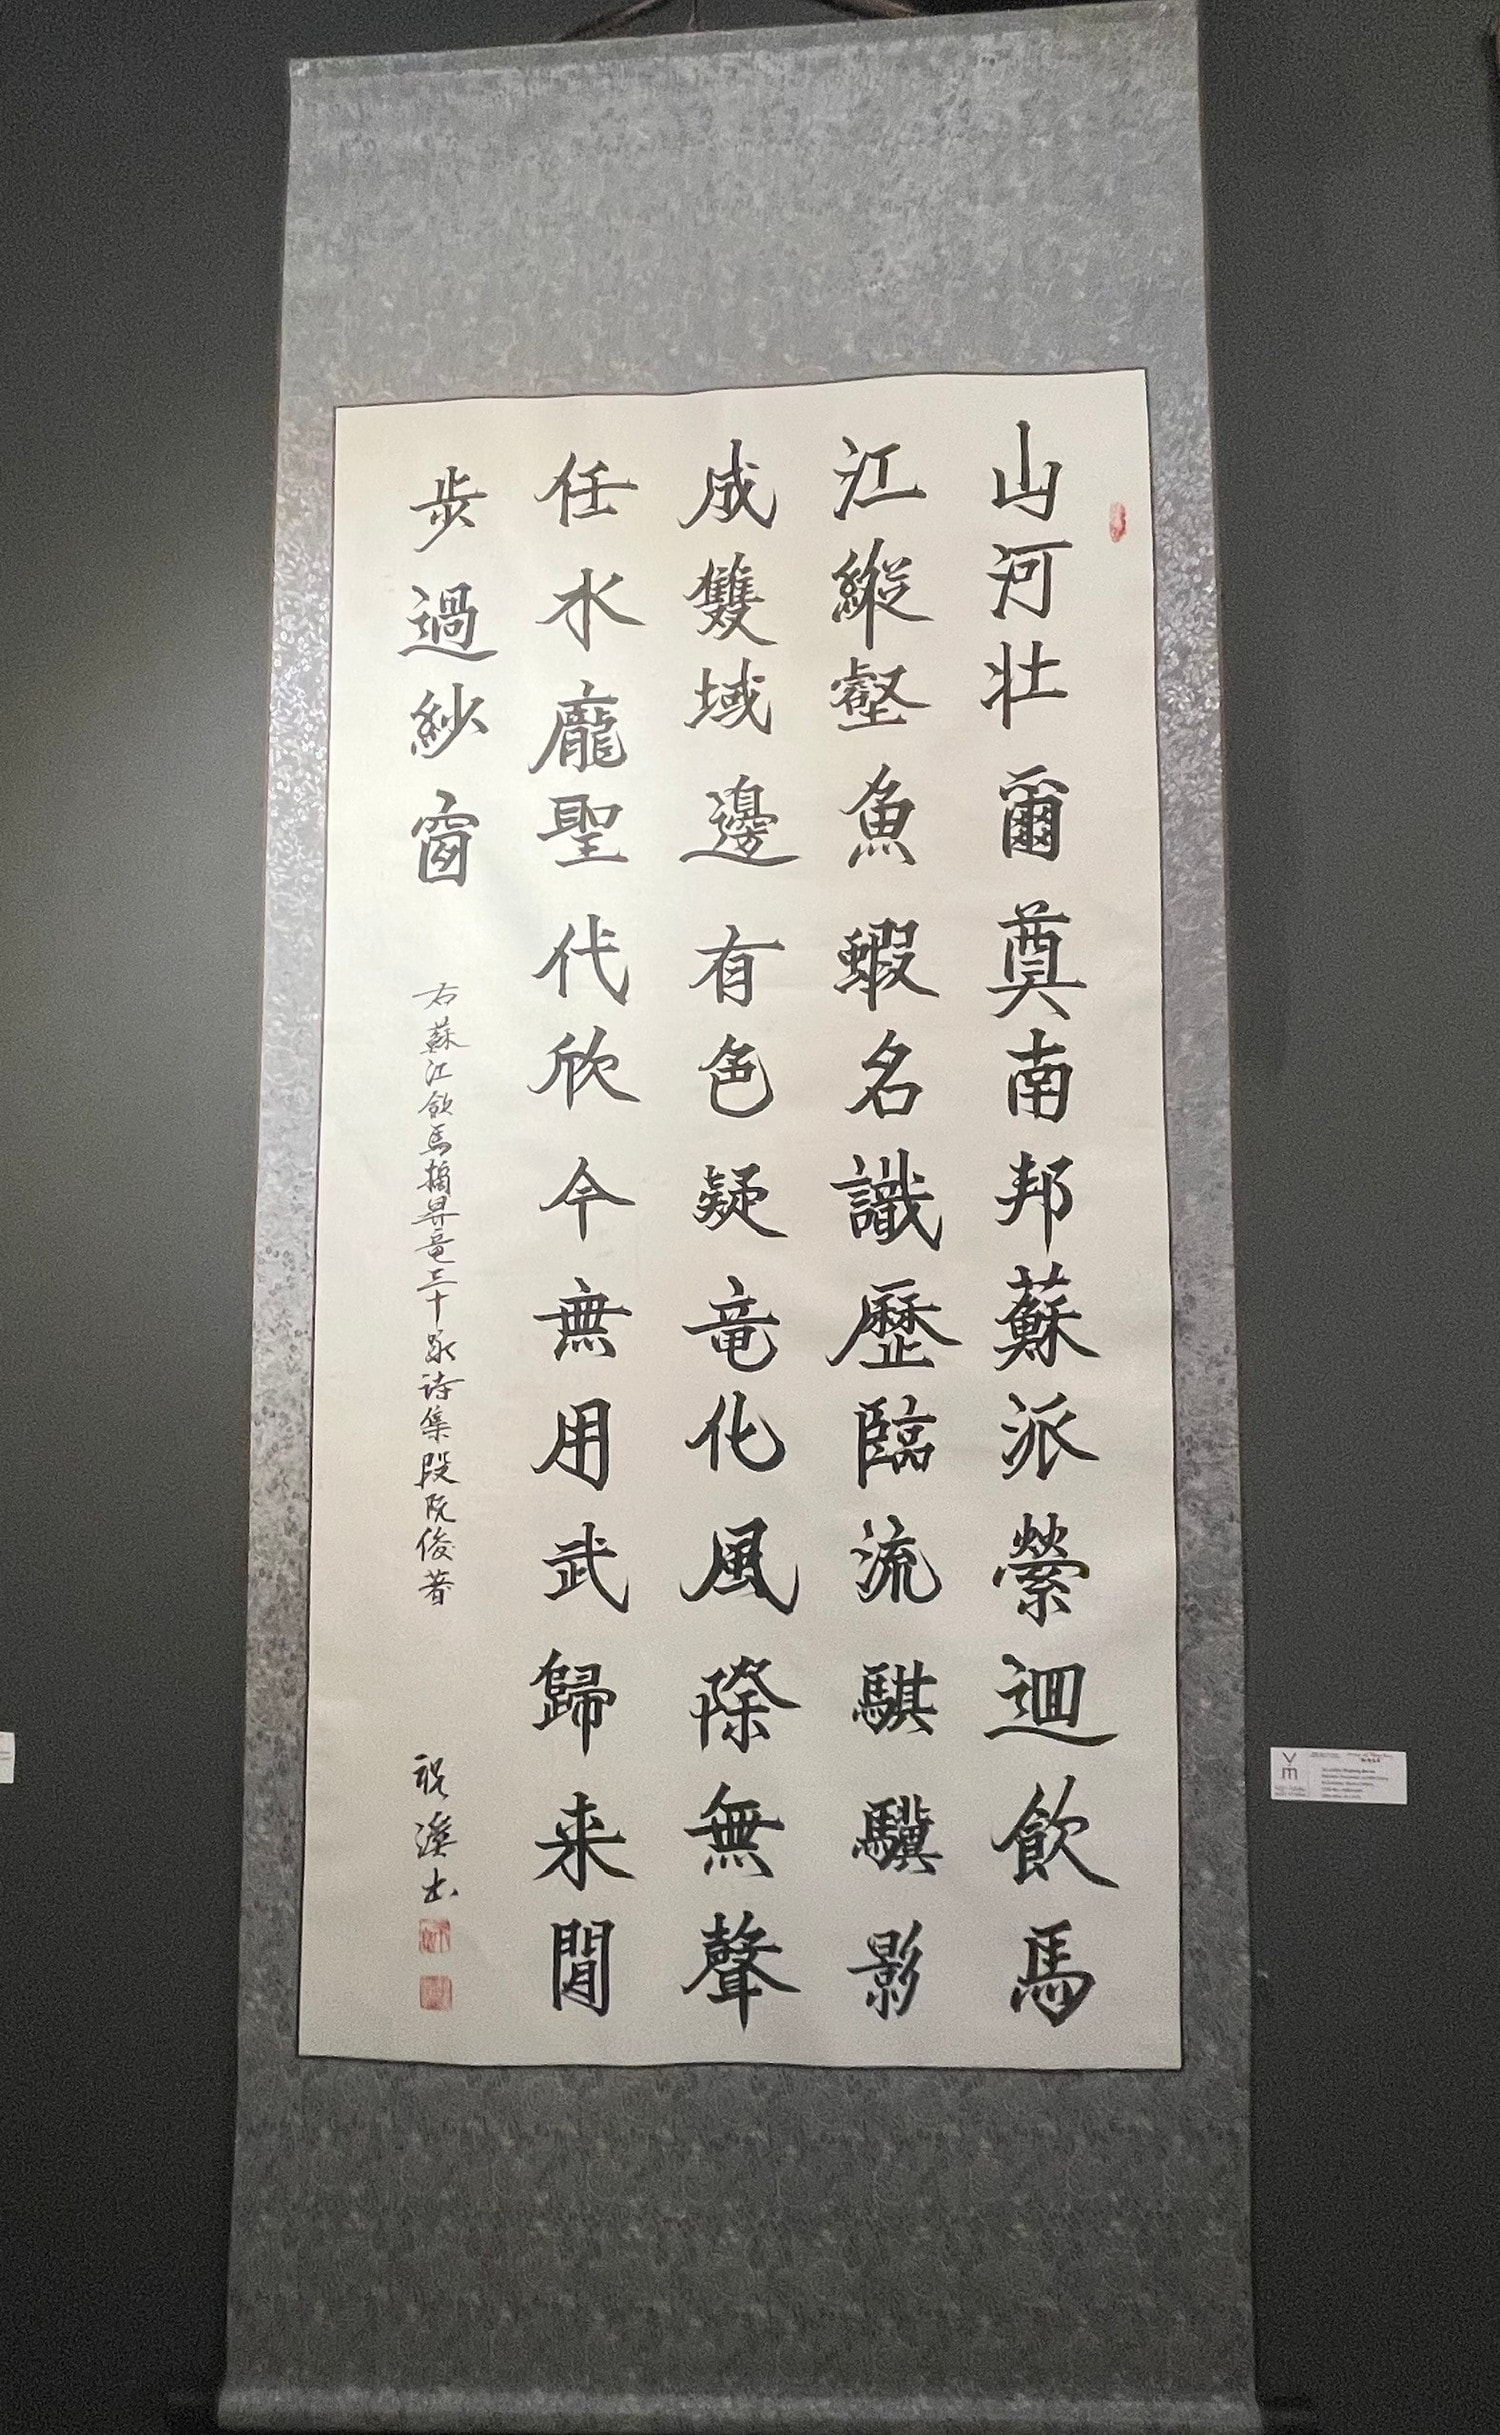 山河壮爾奠南邦蘇派縈迴飲馬
江縱壑魚蝦名識歷臨流騏驥影
成雙域邊有色疑竜化風際無聲
任水龐聖代欣今無用武歸来閒
步過紗窗
右蘇江飲馬摘昇竜三十詠詩集段阮俊著
祝 書